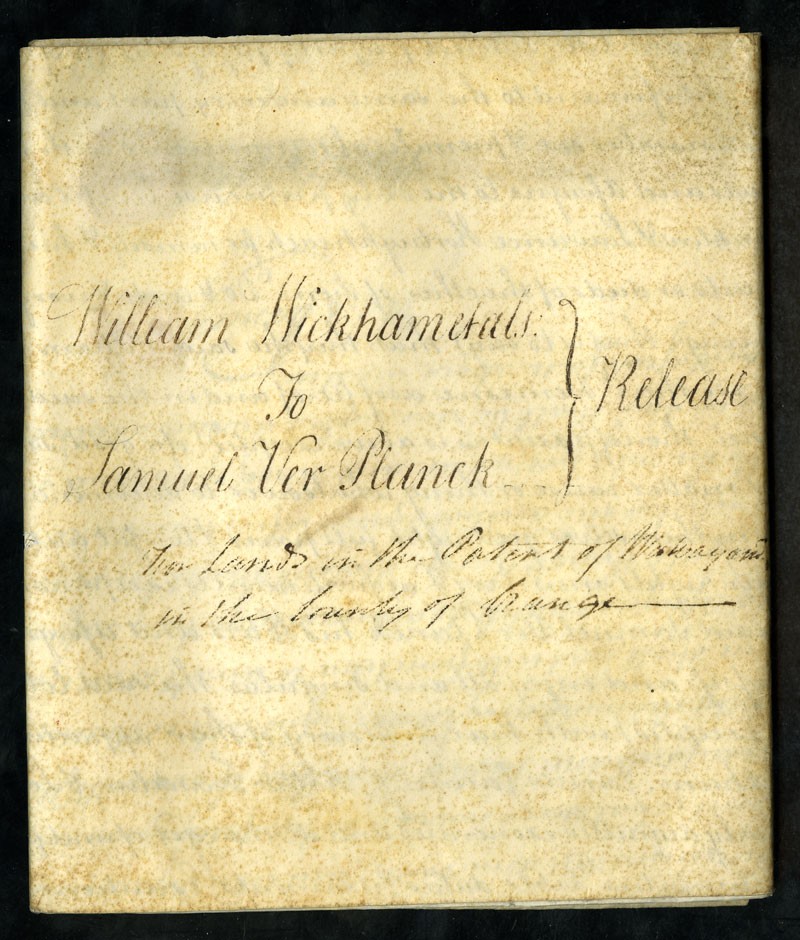 William Wickham et als:
To
Samuel Ver Planck
Release
For Lands in the Patent of Wawayanda
in the County of Orange